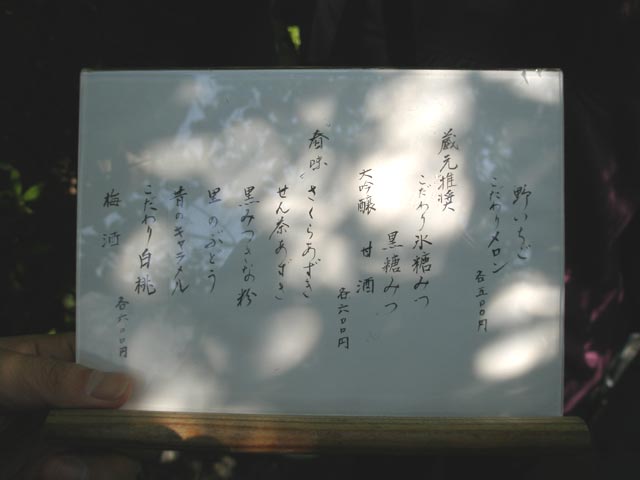 野いちご
こだわりメロン
各五〇〇円
蔵元推奨
こだわり氷糖みつ
黒糖みつ
大吟醸 甘酒
各六〇〇円
春味 さくらあずき
せん茶あずき
黒みつきな粉
里のぶどう
昔のキャラメル
こだわり白桃
梅酒
各六〇〇円